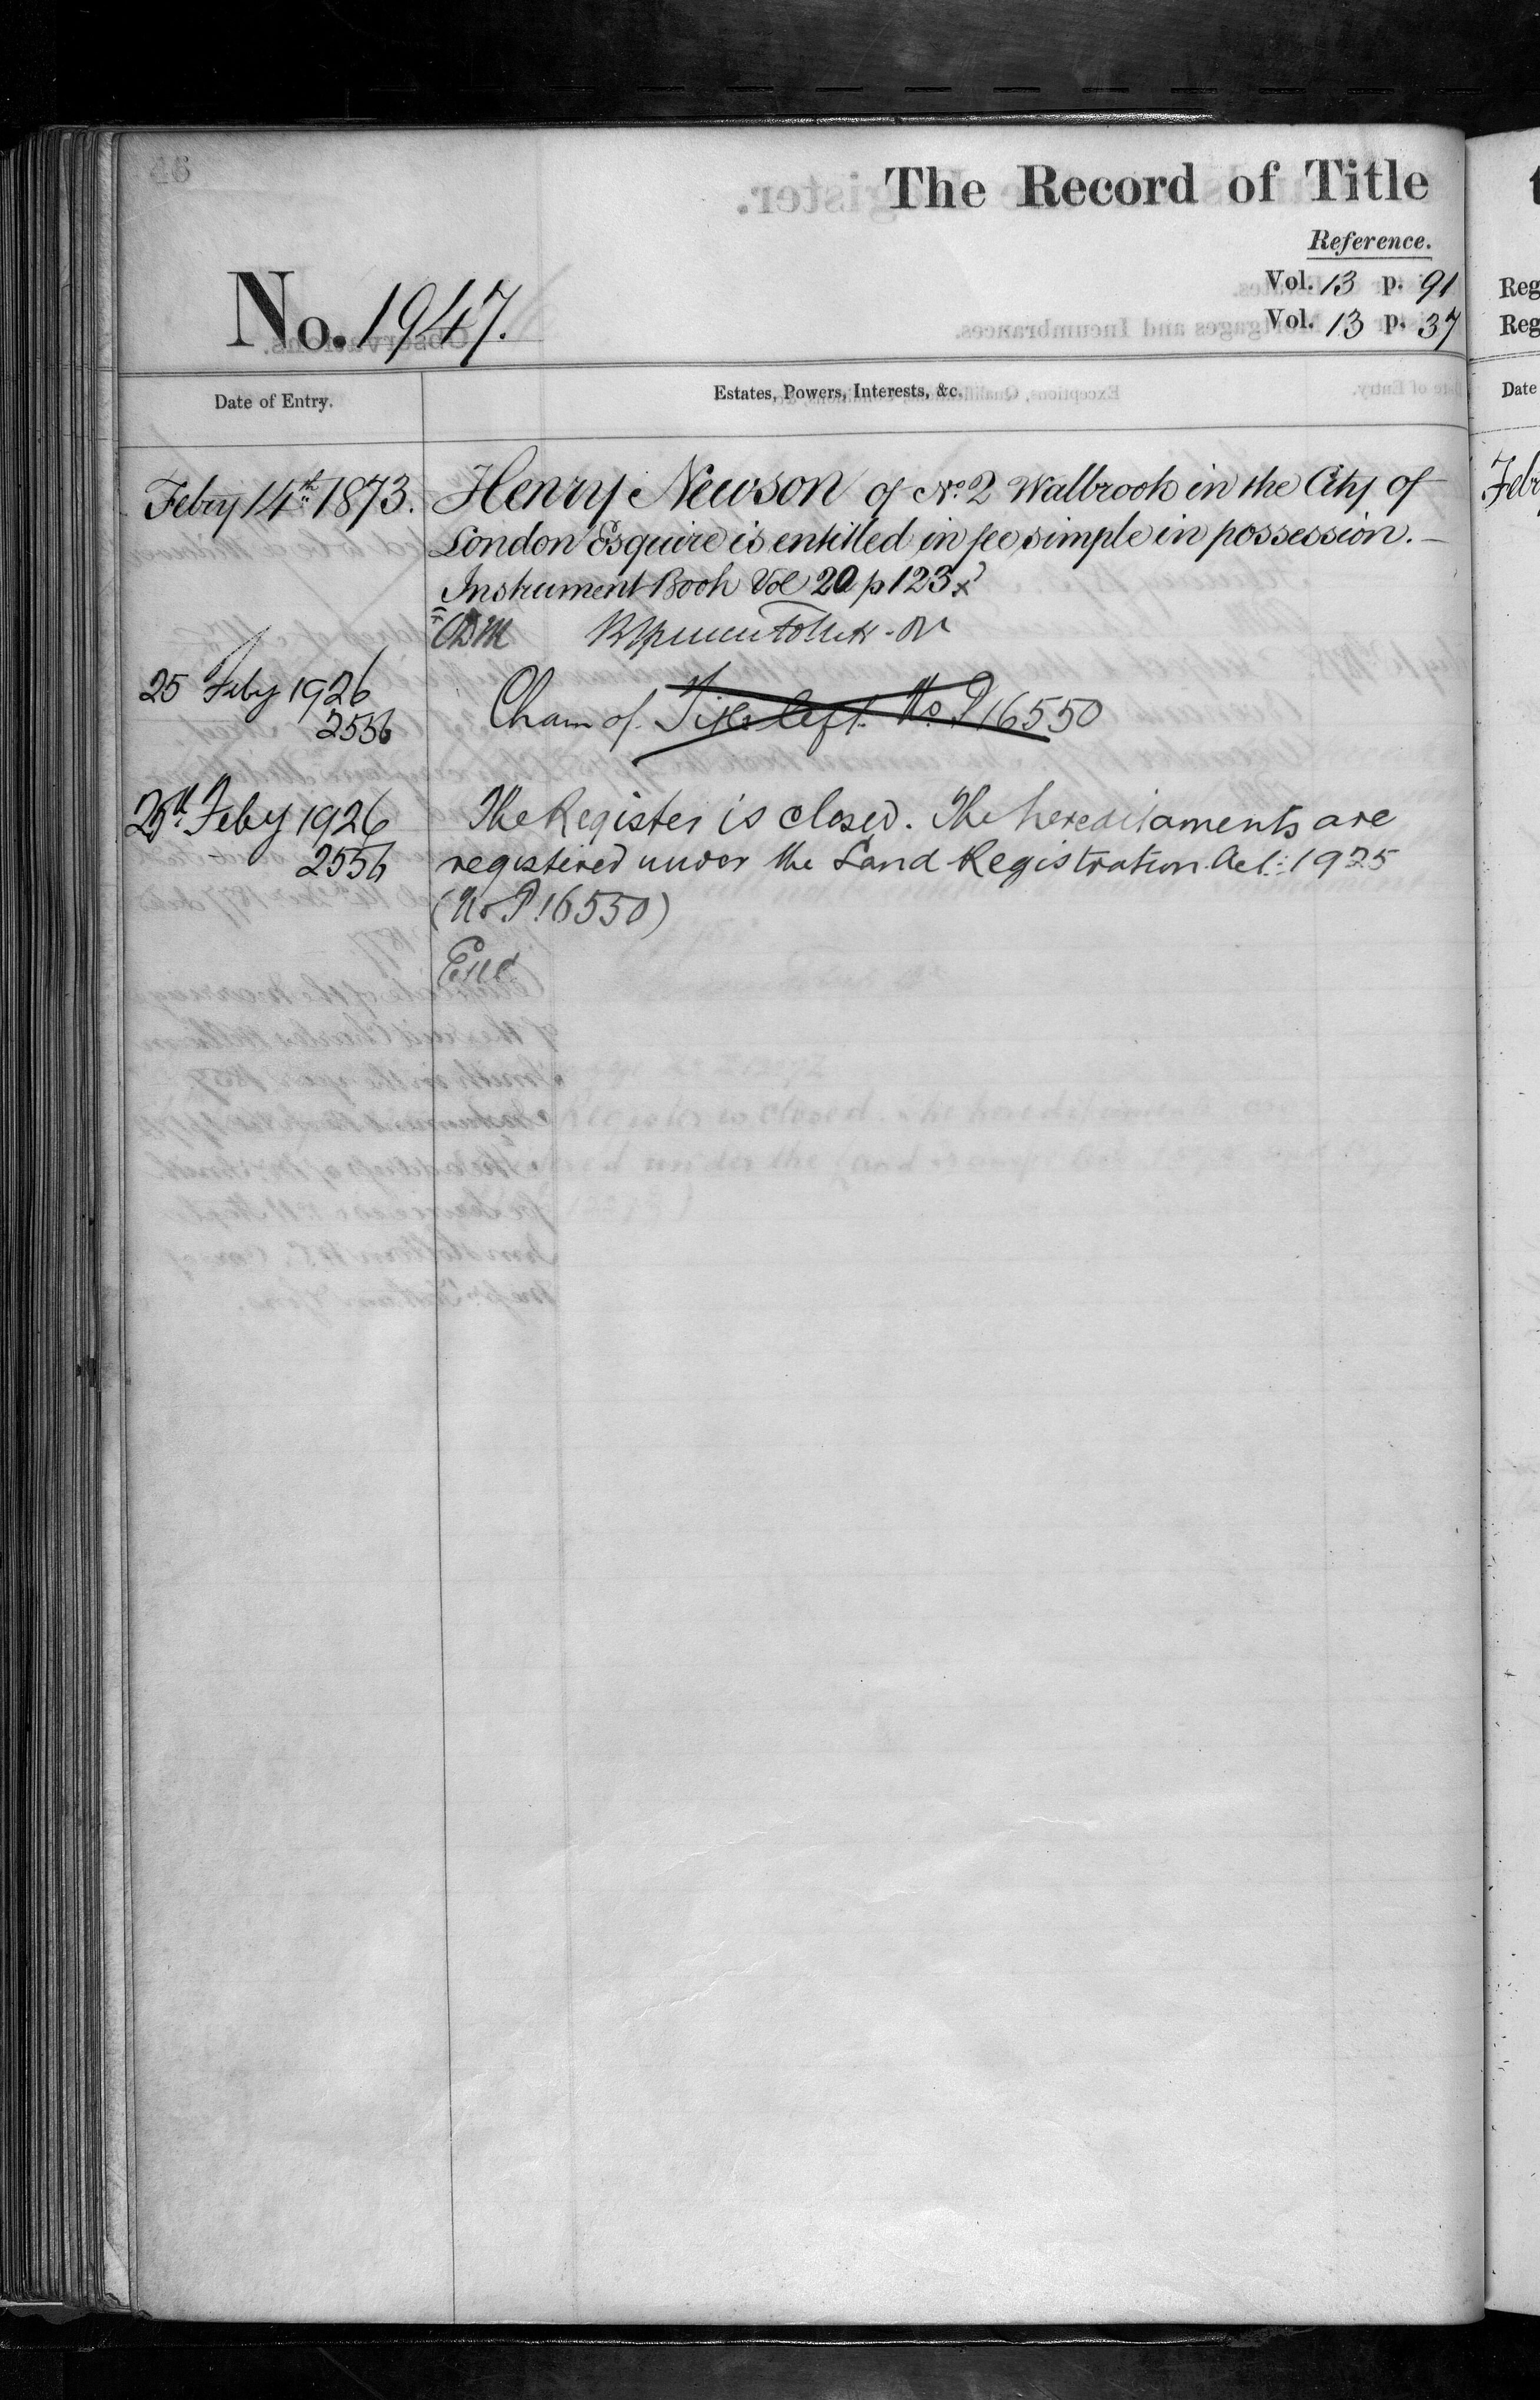 46
The Record of Title
Reference.
Vol. 13 p. 91
Vol. 13 p. 37
No. 1947.
Date of Entry.
Estates, Powers, Interests, &c.
Febry 14th 1873.
Henry Newson of No. 2 Walbrook in the City of
London Esquire is entitled in fee simple in possession.
Instrument Book Vol 20 p 123
25 Feby 1926
2556
Title left. No. P 16550
25th Feby 1926
2556
The Register is closed. The hereditaments are
registered under the Land Registration Act: 1925
(No P. 16550)
Reg
Reg
Date
Febr